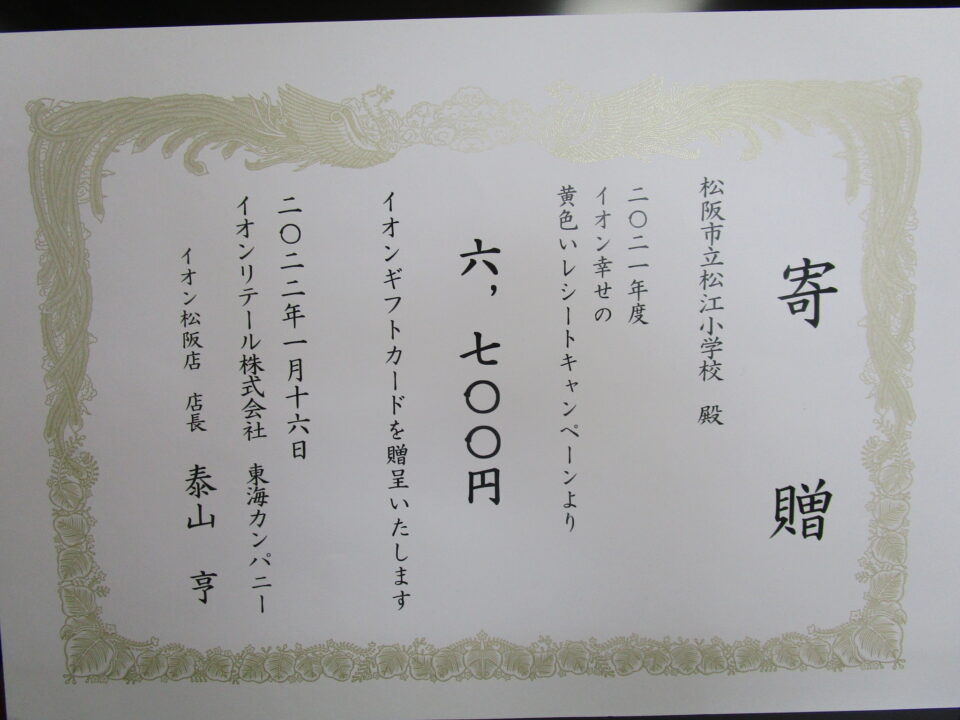 寄贈
松阪市立松江小学校 殿
二〇二一年度
イオン幸せの
黄色いレシートキャンペーンより
六，七〇〇円
イオンギフトカードを贈呈いたします
二〇二二年一月十六日
イオンリテール株式会社 東海カンパニー
イオン松阪店 店長 泰山 亨